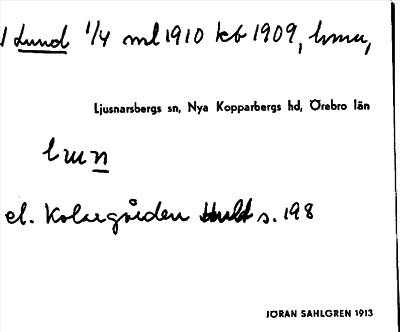 Lund 1/4 ml 1910 kb 1909,
Ljusnarsbergs sn, Nya Kopparbergs hd, Örebro län
el. Kolargården Hult s. 198
JÖRAN SAHLGREN 1913